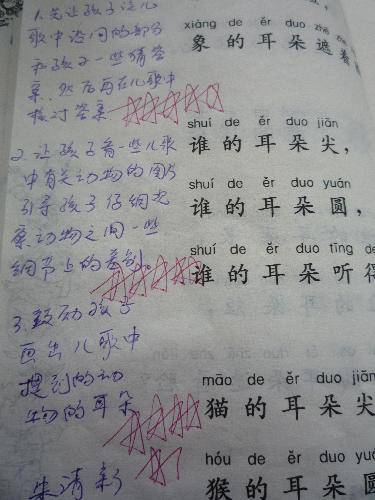 1.先让孩子读儿
歌中造问的部分
和孩子一些猜答
案.然后再在儿歌中
核对答案
2.让孩子看一些儿歌
中有关动物的图片
引导孩子仔细观
察动物之间一些
细节上的差别。
3.鼓励孩子
画出儿歌中
提到的动
物的耳朵
朱清新
xiàng de ěr duo zhē zhe
象的耳朵遮着
shuí de ěr duo jiān
谁的耳朵尖，
shuí de ěr duo yuán
谁的耳朵圆，
shuí de ěr duo tīng de
谁的耳朵听得
māo de ěr duo jiān
猫的耳朵尖
hóu de ěr duo yuá
猴的耳朵